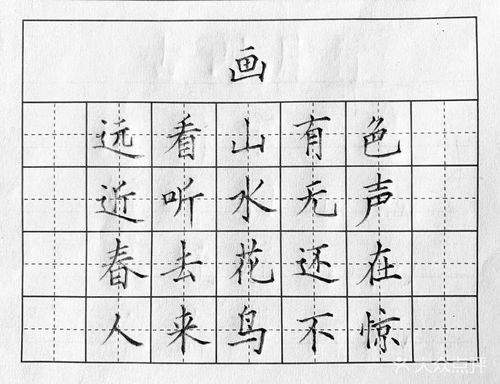 画
远看山有色
近听水无声
春去花还在
人来鸟不惊
大众点评